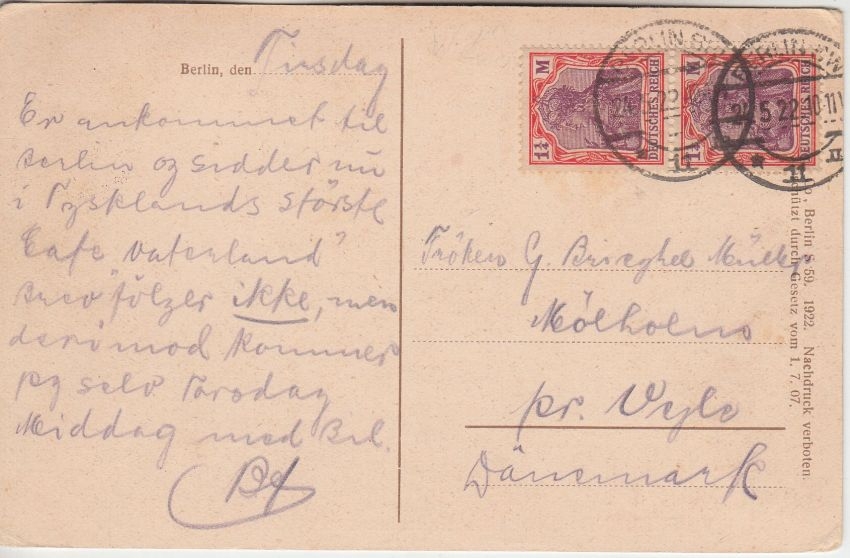 Berlin, den Tirsdag
Er ankommet til
Berlin og sidder nu
i Tysklands störste
Cafe Vaterland"
Brev fölger ikke, men
derimod kommer
jeg selv Torsdag
Middag med
M
1¼
DEUTSCHES REICH
M
1¼
DEUTSCHES REICH
BERLIN SW
11
BERLIN SW
24.5.22.10-11V
* 11
Fröken G. Müller
Mölholm
pr. Vejle
Dänemark
Berlin S 59. 1922. Nachdruck verboten.
durch Gesetz vom 1. 7. 07.